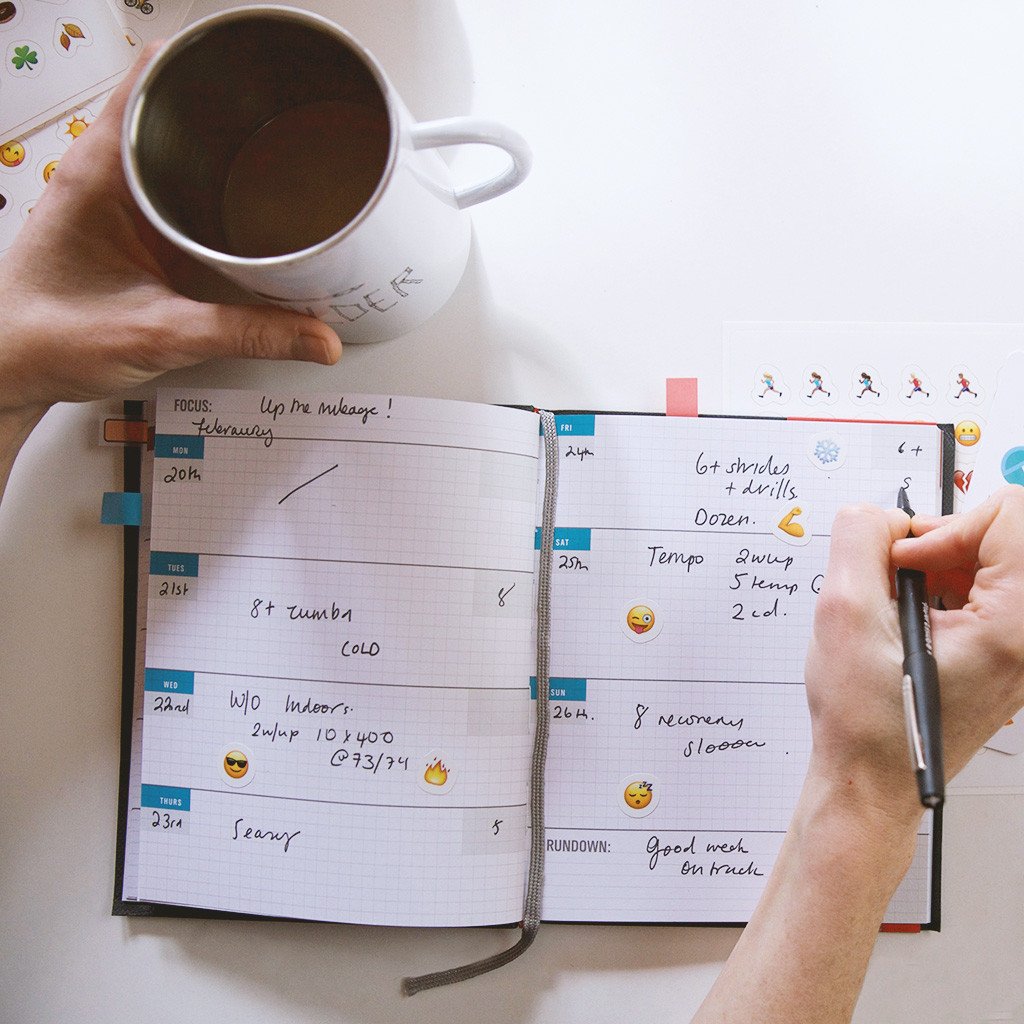 FOCUS: Up the mileage!
Febraury
MON
20th
TUES
21st
8+ zumba 8
COLD
WED
22nd
W/O Indoors.
2w/up 10x400
@73/74
THURS
23rd
5 easy 5
FRI
24th
6+ strides 6+
+ drills S
Dozen.
SAT
25th
Tempo 2wup
5 temp
2cd.
SUN
26th.
8 recovery
slooow.
RUNDOWN: Good week
on track